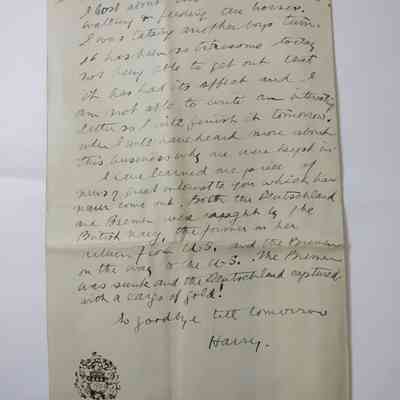 I lost about
walking & feeding the horses.
I was taking another boys turn.
It has been so tiresome today
not being able to get out that
it has had its effect and I
am not able to write an interesting
letter so I will finish it tomorrow.
when I will have heard more about
this business why we were kept in.
I have learned one piece of
news of great interest to you which has
never come out. Both the Deutschland
and Bremen were caught by the
British Navy, the former on her
return from U.S. and the Bremen
on the way to the U.S. The Bremen
was sunk and the Deutschland captured
with a cargo of gold!
So goodbye till tomorrow
Harry.